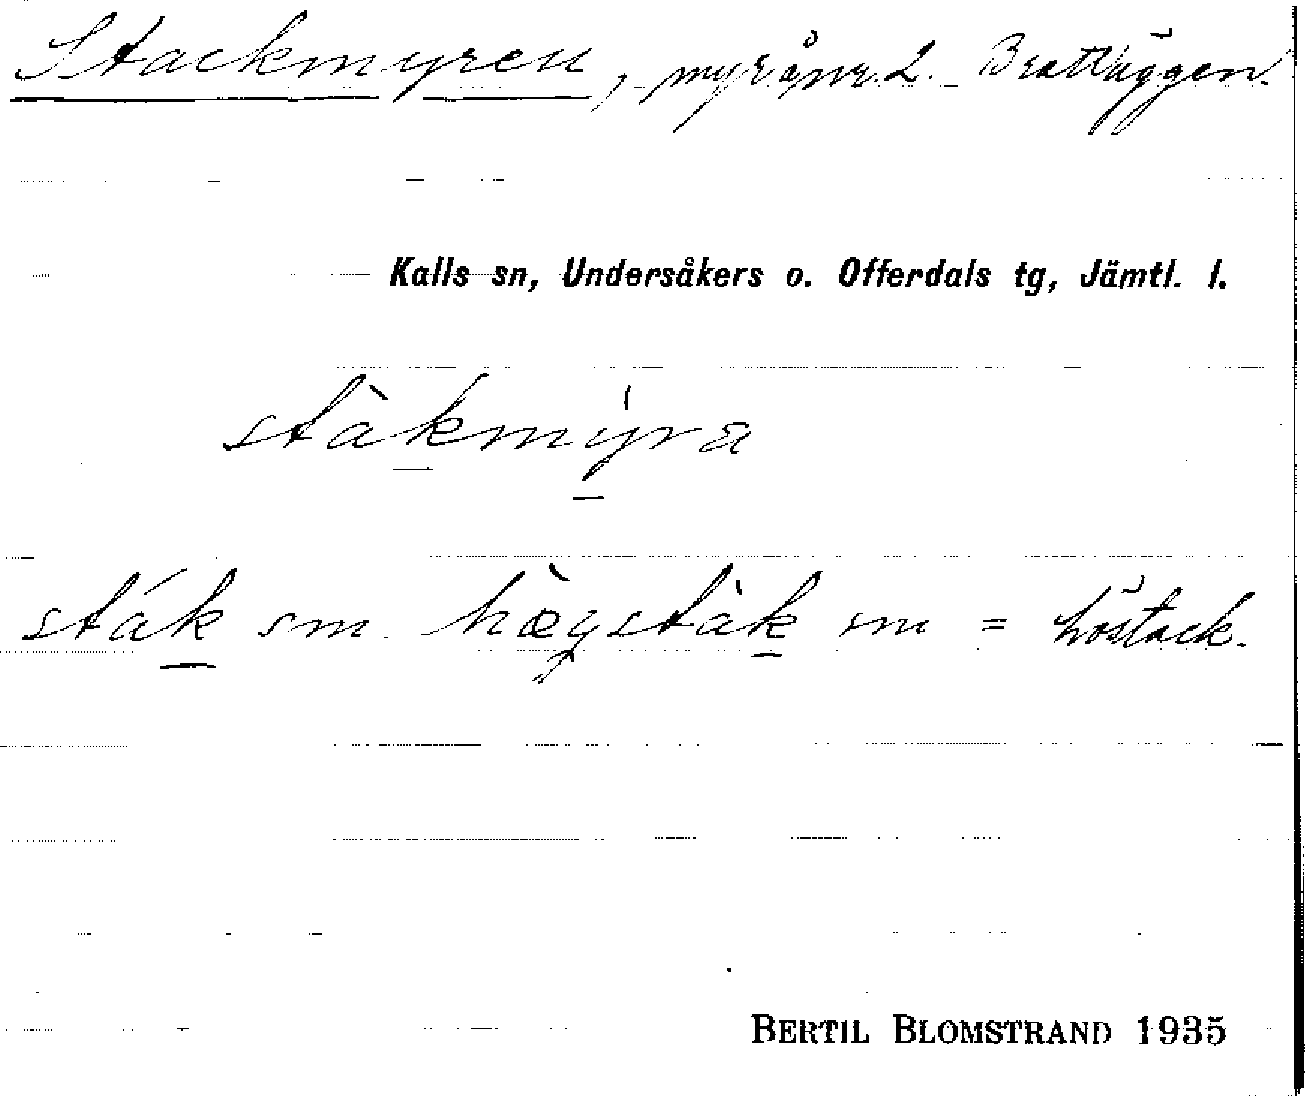 Stackmyren, myr å nr. 2. Brattäggen.
Kalls sn, Undersåkers o. Offerdals tg, Jämtl. l.
stàkmy̍ra
sták sm. hæ̀gstàk sm = höstack.
BERTIL BLOMSTRAND 1935